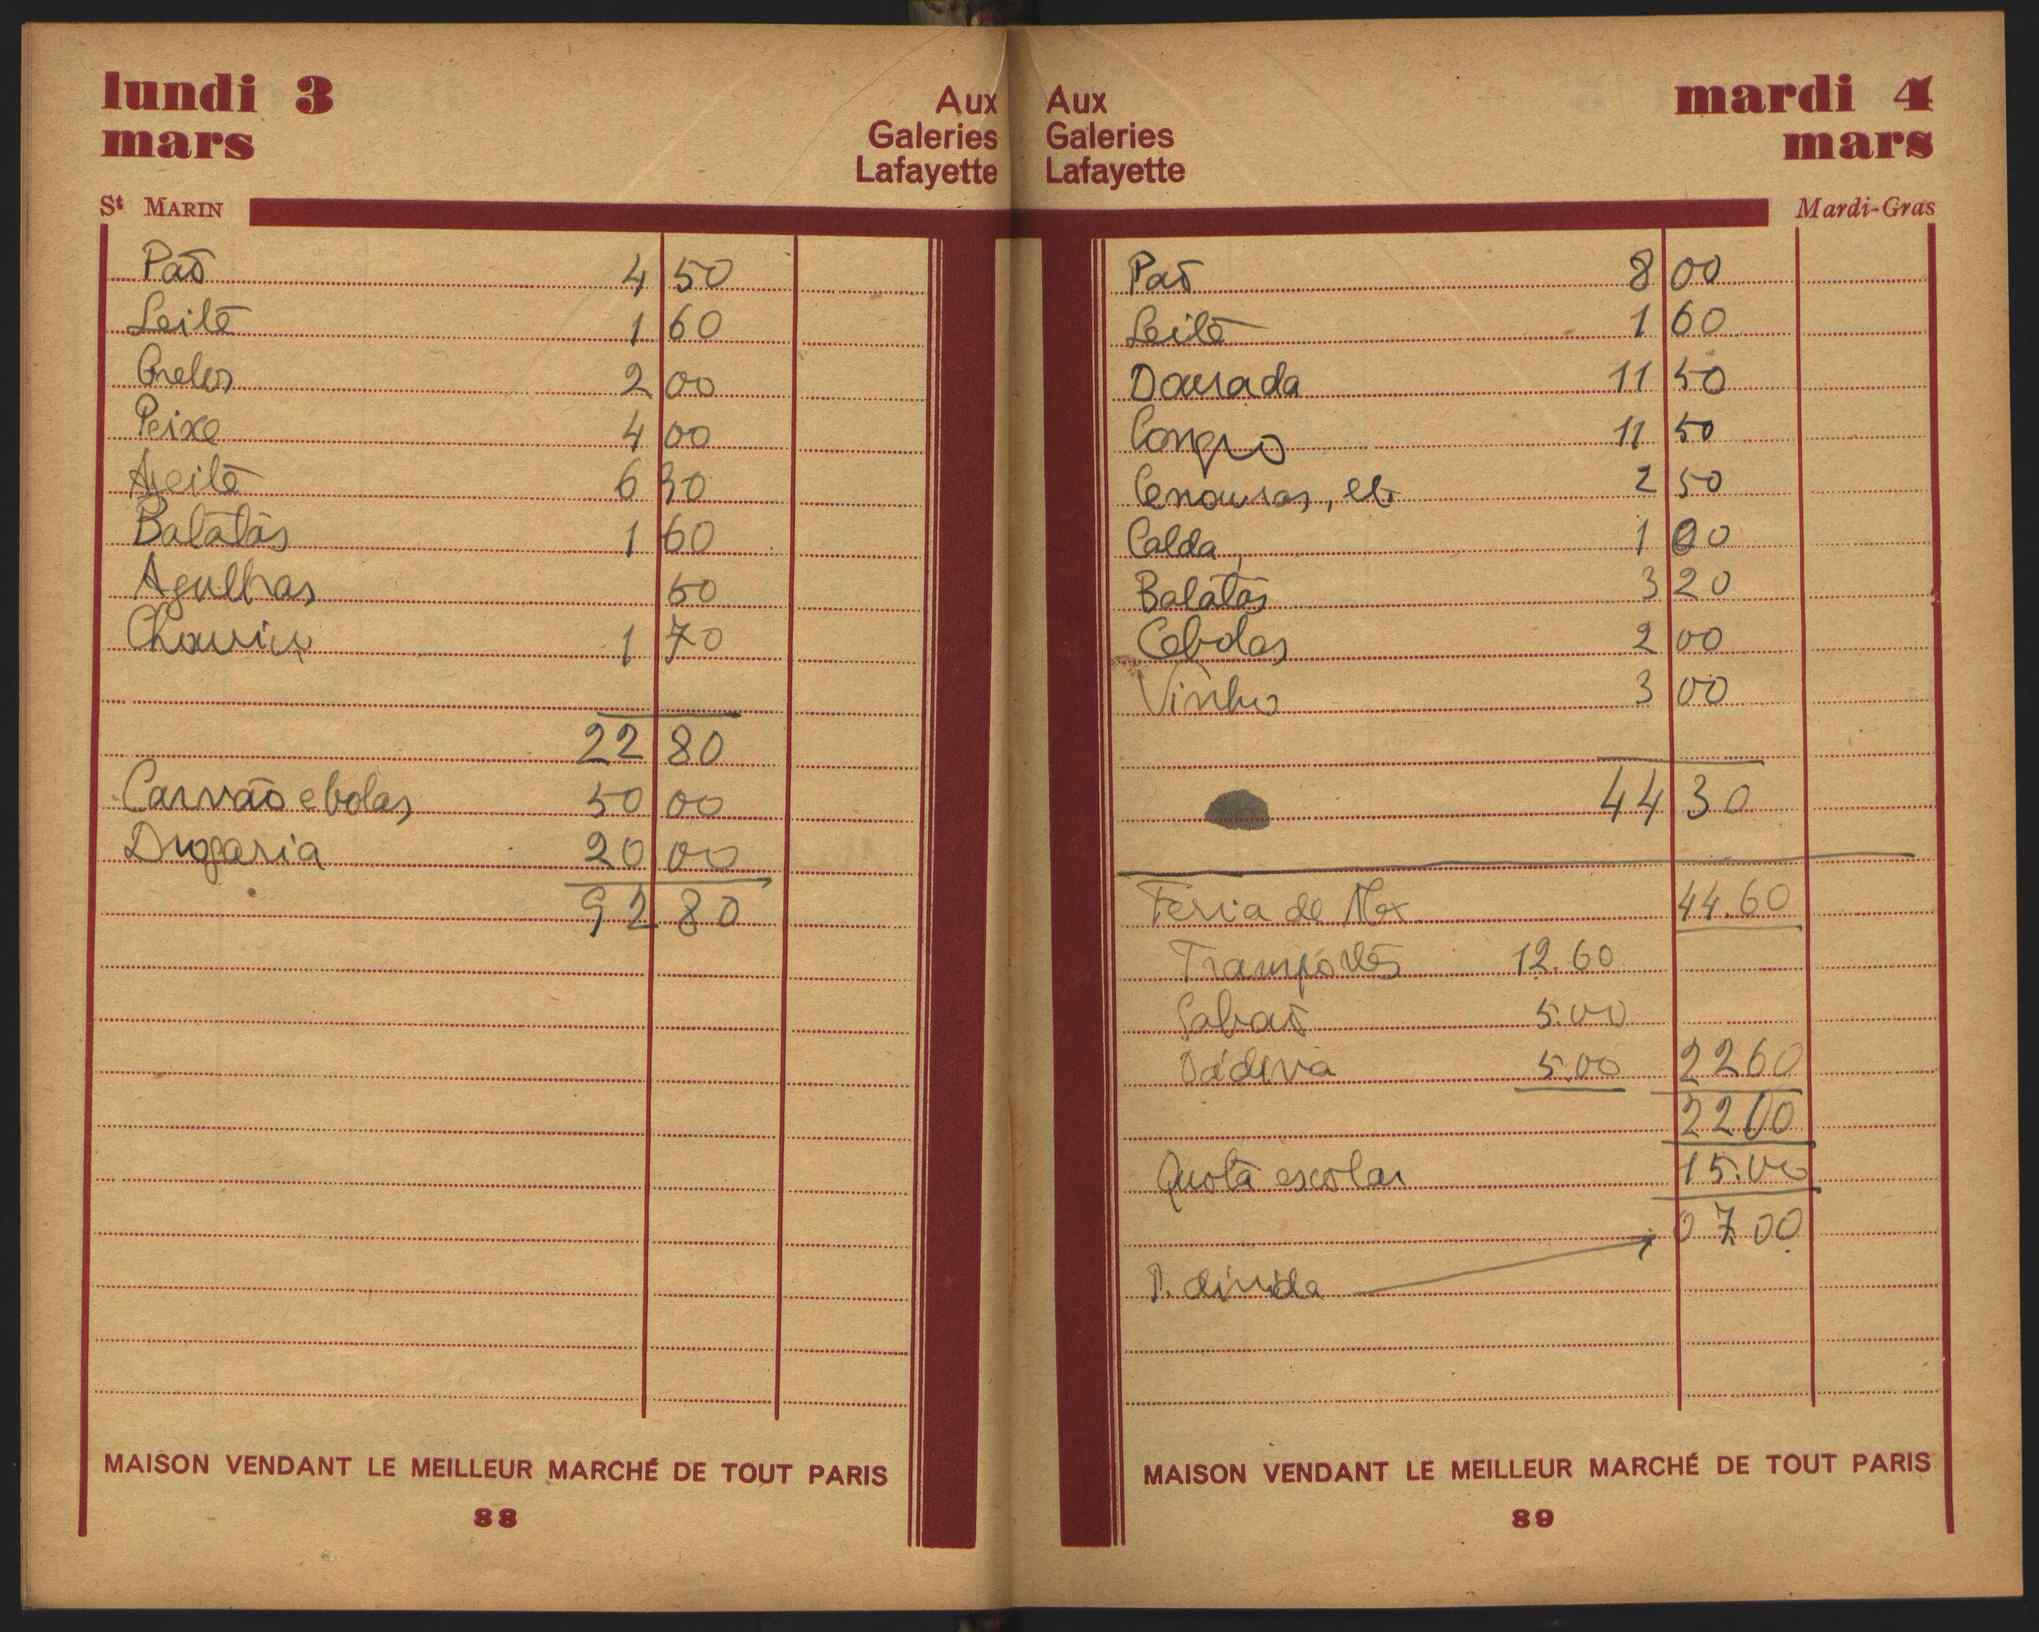 lundi 3
mars
Aux
Galeries
Lafayette
St MARIN
Paõ 4 50
Leite 1 60
Grelos 2 00
Peixe 4 00
Azeite 6 90
Batatas 1 60
Agulhas 50
Chouriço 1 70
22 80
Carvão e bolas 50 00
Drogaria 20 00
92 80
MAISON VENDANT LE MEILLEUR MARCHÉ DE TOUT PARIS
88
Aux
Galeries
Lafayette
mardi 4
mars
Mardi-Gras
Paõ 8 00
Leite 1 60
Dourada 11 50
Congro 11 50
Cenouras, etc. 2 50
Calda 1 00
Batatas 3 20
Cebolas 2 00
Vinho 3 00
44 30
Feria de 44.60
Transportes 12.60
Sabaõ 5.00
Dádiva 5.00 22 60
22 00
Quota escolar 15.00
07 00
D. divida
MAISON VENDANT LE MEILLEUR MARCHÉ DE TOUT PARIS
89